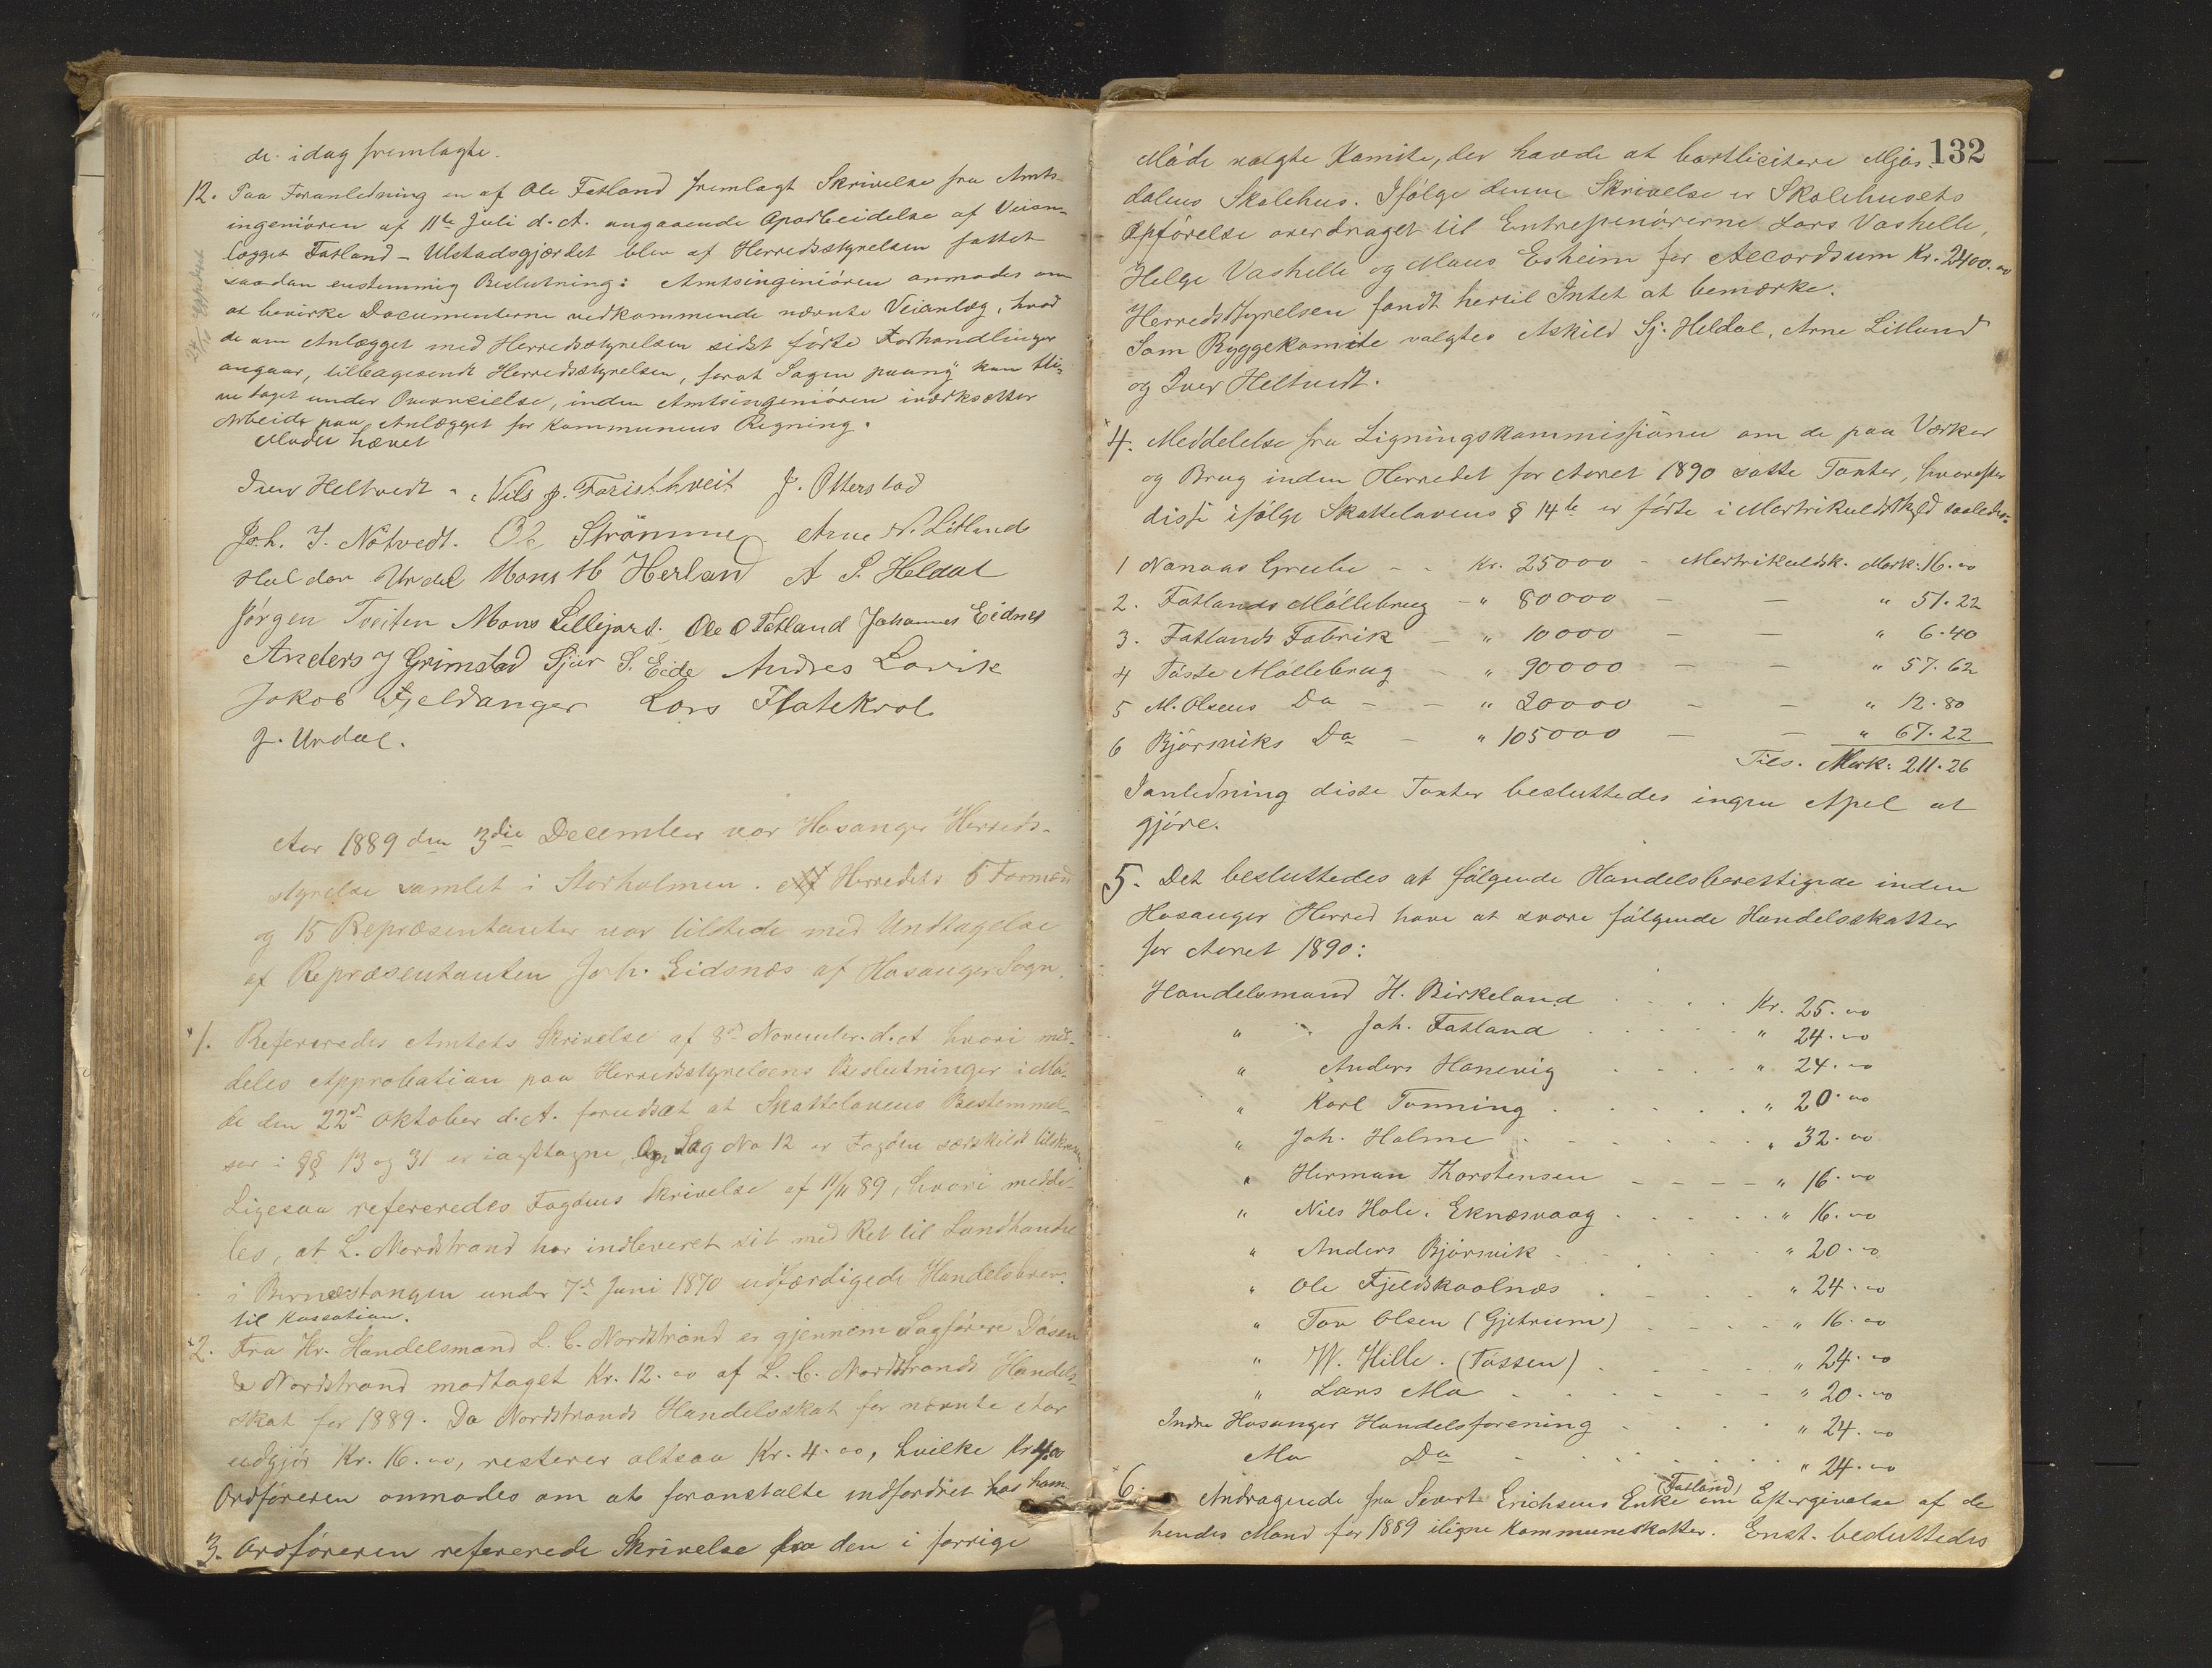 de idag fremlagte.
12. Paa Foranledning en af Ole Fatland fremlagt Skrivelse fra Amts-
ingeniören af 11te Juli d. A. angaaende Oparbeidelse af Veian-
lægget Fatland - Ulstadsgjærdet blev af Herredsstyrelsen fattet
saadan enstemmig Beslutning: Amtsinginiören anmodes om
at bevirke Documenterne vedkommende nævnte Veianlæg, hvad
de om Anlægget med Herredsstyrelsen sidst förte Forhandlinger
angaar, tilbagesendt Herredsstyrelsen, forat Sagen paany kan bli-
ve taget under Overveielse, inden Amtsingeniören iværksætter
Arbeide paa Anlægget for Kommunens Regning.
Mödet hævet
Iver Heltvedt. Nils J. Faristhveit J. Otterstad
Joh. J. Nötvedt. O. Strömme. Arne N. Litland
Haldor Urdal Mons M Herland A S. Heldal
Jörgen Tveiten Mons Lillejord. Ole O Fatland Johannes Eidnes
Anders J Grimstad Sjur S. Eide Andres Lavik
Jakob Fjeldanger Lars Flatekvol
J. Urdal.
Aar 1889 den 3die December var Hosanger Herreds-
styrelse samlet i Storholmen. Af Herredets 5 Formænd
og 15 Repræsentanter var tilstede med Undtagelse
af Repræsentanten Joh. Eidsnæs af Hosanger Sogn.
1. Refereredes Amtets Skrivelse af 8de November d. A. hvori med-
deles Approbation paa Herredsstyrelsens Beslutninger i Mö-
de den 22de Oktober d. A. forudsat at Skattelovens Bestemmel-
ser i §§ 13 og 31 er iagttagne. Om Sag No 12 er Fogden særskildt tilskreven
Ligesaa refereredes Fogdens Skrivelse af 11/11 89, hvori medde-
les, at L. Nordstrand har indleveret sit med Ret til Landhandel
i Bernæstangen under 7de Juni 1870 udfærdigede Handelsbrev
til Kassation.
2. Fra Hr. Handelsmand L. C. Nordstrand er gjennem Sagförere Dösen
& Nordstrand modtaget Kr. 12.00 af L. C. Nordstrands Handels-
skat for 1889. Da Nordstrands Handelsskat for nævnte Aar
udgjör Kr. 16.00, resterer altsaa Kr. 4.00, hvilke Kr 4.00
Ordföreren anmodes om at foranstalte indfordret hos ham.
3. Ordföreren refererede Skrivelse fra den i forrige
132
Möde valgte Komite, der havde at bortlicitere Mjös-
dalens Skolehus. Ifölge denne Skrivelse er Skolehusets
Opförelse overdraget til Entrepenörerne Lars Vashelle,
Helge Vashelle og Mons Esheim for Accordsum Kr. 2400.00
Herredsstyrelsen fandt hertil Intet at bemærke.
Som Byggekomite valgtes Askild Sj. Heldal, Arne Litland
og Iver Heltvedt.
4. Meddelelse fra Ligningskommissionen om de paa Værker
og Brug inden Herredet for Aaret 1890 satte Taxter, hvorefter
disse ifölge Skattelovens § 14de er förte i Matrikulskyld saaledes:
1 Nonaas Grube - - Kr. 25000 - Matrikulsk. Mark: 16.00
2. Fotlands Möllebrug - " 80000 - - " 51.22
3. Fatlands Fabrik - " 10000 - - " 6.40
4 Tösse Möllebrug - " 90000 - - " 57.62
5 M. Olsens Do - - " 20000 - - " 12.80
6 Bjørsviks Do - " 105000 - - " 67.22
Tils. Mark: 211.26
Ianledning disse Taxter besluttedes ingen Apel at
gjöre.
5. Det besluttedes at fölgende Handelsberettigede inden
Hosanger Herred have at svare fölgende Handelsskatter
for Aaret 1890:
Handelsmand H. Birkeland . . . . Kr. 25.00
" Joh. Fatland . . . . . " 24.00
" Anders Hanevig . . . . " 24.00
" Karl Tonning . . . . . " 20.00
" Joh. Holme . . . . . . " 32.00
" Herman Thorstensen - - - - " 16.00
" Nils Hole. Eknæsvaag . . . . . " 16.00
" Anders Bjørsvik . . . . . . " 20.00
" Ole Fjeldskaalnæs . . . . " 24.00
" Tov Olsen (Gjetrum) . . . . " 16.00
" W. Hille. (Tössen) . . . . " 24.00
" Lars Mo . . . . . . " 20.00
Indre Hosanger Handelsforening . . . " 24.00
Mo Do . . . . . . . " 24.00
6. Andragende fra Sivert Erichsens Enke (Fatland) om Eftergivelse af de
hendes Mand for 1889 iligne Kommuneskatter. Enst. besluttedes